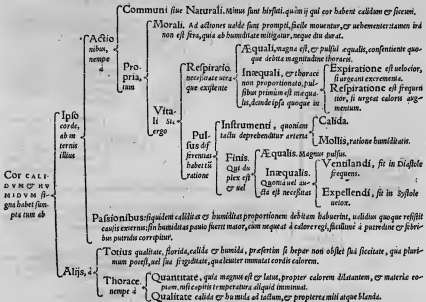 Communi siue Naturali. Minus sunt hirsuti. quàm ij qui cor habent calidum & siccum.
Actio
nibus,
nempe
à
Pro
pria,
tum
Morali. Ad actiones ualde sunt prompti, facile mouentur, & uehementer: tamen ira
non est fera, quia ab humiditate mitigatur, neque diu durat.
Vita
li
ergo
Respiratio.
necessitate utra
que existente
Æquali, magna est, & pulsui æqualis, consentiente quo
que debita magnitudine thoracis.
Inæquali, & thorace
non proportionato, pul-
sibus primùm est inæqua-
lis, deinde ipsa quoque in
Expiratione est uelocior,
si urgeant excrementa.
Respiratione est frequen
tior, si urgeat caloris aug
Pul
sus dif
ferentias
habet tū
ratione
Instrumenti, quoniam
tactu deprehenditur arteria
Calida.
Mollis, ratione humiditatis.
Finis.
Qui du
plex est
& uel
Æqualis. Magnus pulsus.
Inæqualis.
Quoniam uel au-
cta est necessitas
Ventilandi, fit in Diastole
frequens.
Expellendi, fit in Systole
uelox.
Ipso
corde,
ab in
ternis
illius
Passionibus: siquidem caliditas & humiditas proportionem debitam habuerint, ualidius quoque resistit
causis externis: sin humiditas paulo fuerit maior, cum nequeat à calore regi, facillimè à putredine & febri
bus putridis corripitur.
Cor CALI
DVM & HV
MIDVM si-
gna habet sum
pta tum ab
Alijs, à
Totius qualitate, florida, calida & humida, præsertim si hepar non obstet sua siccitate, qua pluri-
mum potest, uel sua frigiditate, qua leuiter immutat cordis calorem.
Thorace
nempe à
Quantitate, quia magnus est & latus, propter calorem dilatantem, & materiæ co
piam. nisi capitis temperatura aliquid imminuat.
Qualitate calida & humida ad tactum, & propterea miti atque blanda.